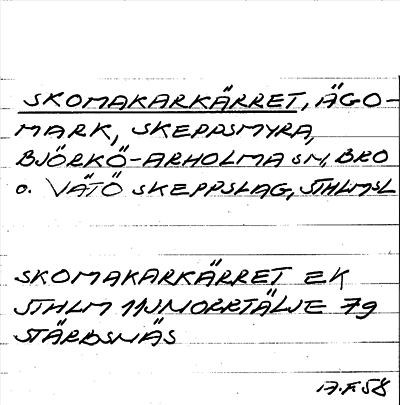 SKOMAKARKÄRRET, ÄGO-
MARK, SKEPPSMYRA,
BJÖRKÖ-ARHOLMA SN, BRO
o. VÄTÖ SKEPPSLAG, STHLMSL
SKOMAKARKÄRRET EK
STHLM 11J NORRTÄLJE 79
STÄRBSNÄS